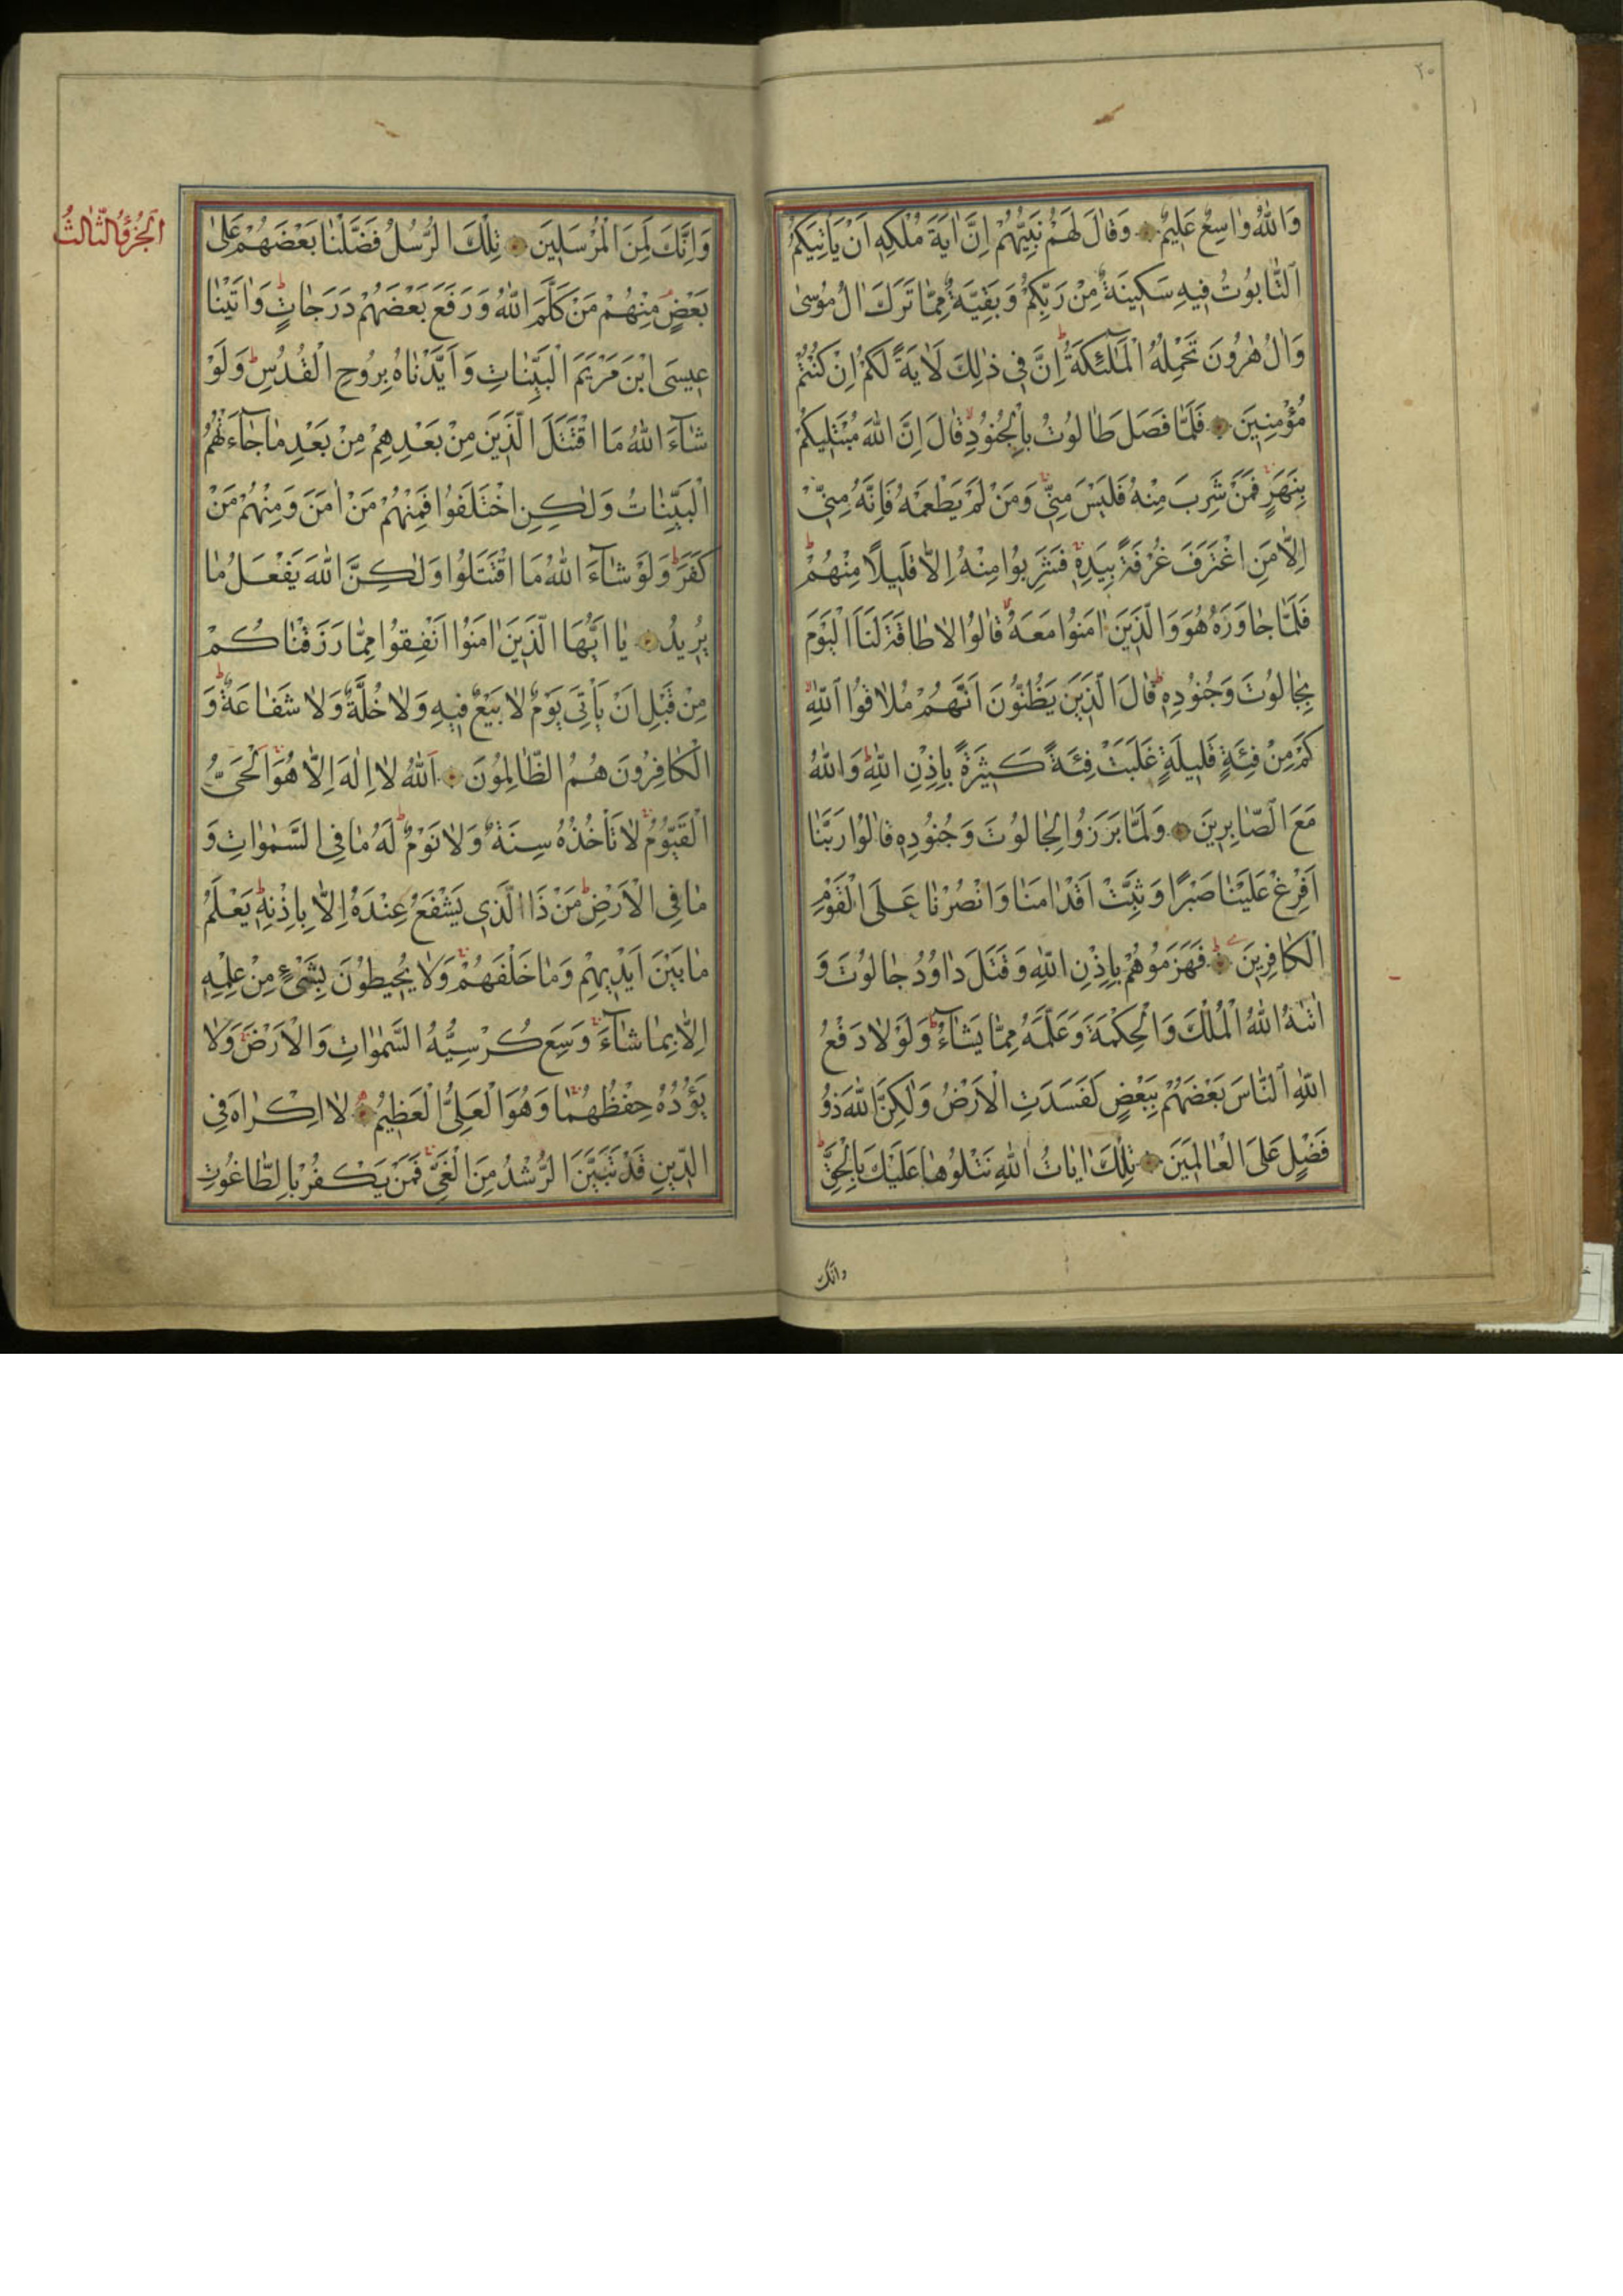 ٢٠
وَاللّٰهُ وٰاسِعٌ عَلِيمٌ وَقٰالَ لَهُمْ نَبِيُّهُمْ اِنَّ اٰيَةَ مُلْكِهِ اَنْ يَأْتِيَكُمُ
التّٰابُوتُ فِيهِ سَكِينَةٌ مِنْ رَبِّكُمْ وَبَقِيَّةٌ مِمّٰا تَرَكَ اٰلُ مُوسىٰ
وَاٰلُ هٰرُونَ تَحْمِلُهُ الْمَلٰٓئِكَةُ ط اِنَّ فِي ذٰلِكَ لَاٰيَةً لَكُمْ اِنْ كُنْتُمْ
مُؤْمِنِينَ فَلَمّٰا فَصَلَ طٰالُوتُ بِالْجُنُودِ لا قٰالَ اِنَّ اللّٰهَ مُبْتَلِيكُمْ
بِنَهَرٍ فَمَنْ شَرِبَ مِنْهُ فَلَيْسَ مِنِّي وَمَنْ لَمْ يَطْعَمْهُ فَاِنَّهُ مِنِّي
اِلّٰا مَنِ اغْتَرَفَ غُرْفَةً بِيَدِهِ فَشَرِبُوا مِنْهُ اِلّٰا قَلِيلًا مِنْهُمْ ط
فَلَمّٰا جٰاوَزَهُ هُوَ وَالَّذِينَ اٰمَنُوا مَعَهُ لا قٰالُوا لاٰ طٰاقَةَ لَنَا الْيَوْمَ
بِجٰالُوتَ وَجُنُودِهِ ط قٰالَ الَّذِينَ يَظُنُّونَ اَنَّهُمْ مُلٰاقُوا اللّٰهِ لا
كَمْ مِنْ فِئَةٍ قَلِيلَةٍ غَلَبَتْ فِئَةً كَثِيرَةً بِاِذْنِ اللّٰهِ ط وَاللّٰهُ
مَعَ الصّٰابِرِينَ وَلَمّٰا بَرَزُوا لِجٰالُوتَ وَجُنُودِهِ قٰالُوا رَبَّنٰا
اَفْرِغْ عَلَيْنٰا صَبْرًا وَثَبِّتْ اَقْدٰامَنٰا وَانْصُرْنٰا عَلَى الْقَوْمِ
الْكٰافِرِينَ ط فَهَزَمُوهُمْ بِاِذْنِ اللّٰهِ وَقَتَلَ دٰاوُدُ جٰالُوتَ وَ
اٰتٰىهُ اللّٰهُ الْمُلْكَ وَالْحِكْمَةَ وَعَلَّمَهُ مِمّٰا يَشٰآءُ ط وَلَوْلٰا دَفْعُ
اللّٰهِ النّٰاسَ بَعْضَهُمْ بِبَعْضٍ لَفَسَدَتِ الْاَرْضُ وَلٰكِنَّ اللّٰهَ ذُو
فَضْلٍ عَلَى الْعٰالَمِينَ تِلْكَ اٰيٰاتُ اللّٰهِ نَتْلُوهٰا عَلَيْكَ بِالْحَقِّ ط
وانّك
اَلْجُزْؤُ الثّٰالِثُ
وَاِنَّكَ لَمِنَ الْمُرْسَلِينَ تِلْكَ الرُّسُلُ فَضَّلْنٰا بَعْضَهُمْ عَلىٰ
بَعْضٍ مِنْهُمْ مَنْ كَلَّمَ اللّٰهُ وَرَفَعَ بَعْضَهُمْ دَرَجٰاتٍ ط وَاٰتَيْنٰا
عِيسَى ابْنَ مَرْيَمَ الْبَيِّنٰاتِ وَاَيَّدْنٰاهُ بِرُوحِ الْقُدُسِ ط وَلَوْ
شٰآءَ اللّٰهُ مَا اقْتَتَلَ الَّذِينَ مِنْ بَعْدِهِمْ مِنْ بَعْدِ مٰا جٰآءَتْهُمُ
الْبَيِّنٰاتُ وَلٰكِنِ اخْتَلَفُوا فَمِنْهُمْ مَنْ اٰمَنَ وَمِنْهُمْ مَنْ
كَفَرَ ط وَلَوْ شٰآءَ اللّٰهُ مَا اقْتَتَلُوا وَلٰكِنَّ اللّٰهَ يَفْعَلُ مٰا
يُرِيدُ يٰا اَيُّهَا الَّذِينَ اٰمَنُوا اَنْفِقُوا مِمّٰا رَزَقْنٰاكُمْ
مِنْ قَبْلِ اَنْ يَأْتِيَ يَوْمٌ لٰا بَيْعٌ فِيهِ وَلٰا خُلَّةٌ وَلٰا شَفٰاعَةٌ ط وَ
الْكٰافِرُونَ هُمُ الظّٰالِمُونَ اَللّٰهُ لٰا اِلٰهَ اِلّٰا هُوَ اَلْحَيُّ
الْقَيُّومُ لٰا تَأْخُذُهُ سِنَةٌ وَلٰا نَوْمٌ ط لَهُ مٰا فِي السَّمٰوٰاتِ وَ
مٰا فِي الْاَرْضِ ط مَنْ ذَا الَّذِي يَشْفَعُ عِنْدَهُ اِلّٰا بِاِذْنِهِ ط يَعْلَمُ
مٰا بَيْنَ اَيْدِيهِمْ وَمٰا خَلْفَهُمْ وَلٰا يُحِيطُونَ بِشَيْءٍ مِنْ عِلْمِهِ
اِلّٰا بِمٰا شٰآءَ وَسِعَ كُرْسِيُّهُ السَّمٰوٰاتِ وَالْاَرْضَ وَلٰا
يَؤُدُهُ حِفْظُهُمٰا وَهُوَ الْعَلِيُّ الْعَظِيمُ لٰا اِكْرٰاهَ فِي
الدِّينِ قَدْ تَبَيَّنَ الرُّشْدُ مِنَ الْغَيِّ فَمَنْ يَكْفُرْ بِالطّٰاغُوتِ